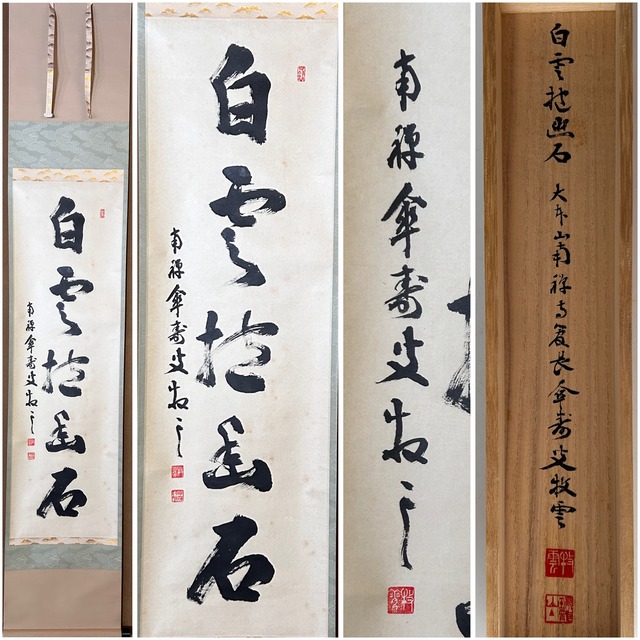 白雲抱幽石
南禅傘寿叟牧雲
白雲抱幽石
南禅傘寿叟牧雲
南禅傘寿叟牧雲
牧雲
白雲抱幽石 大本山南禅寺管長傘寿叟牧雲
牧雲